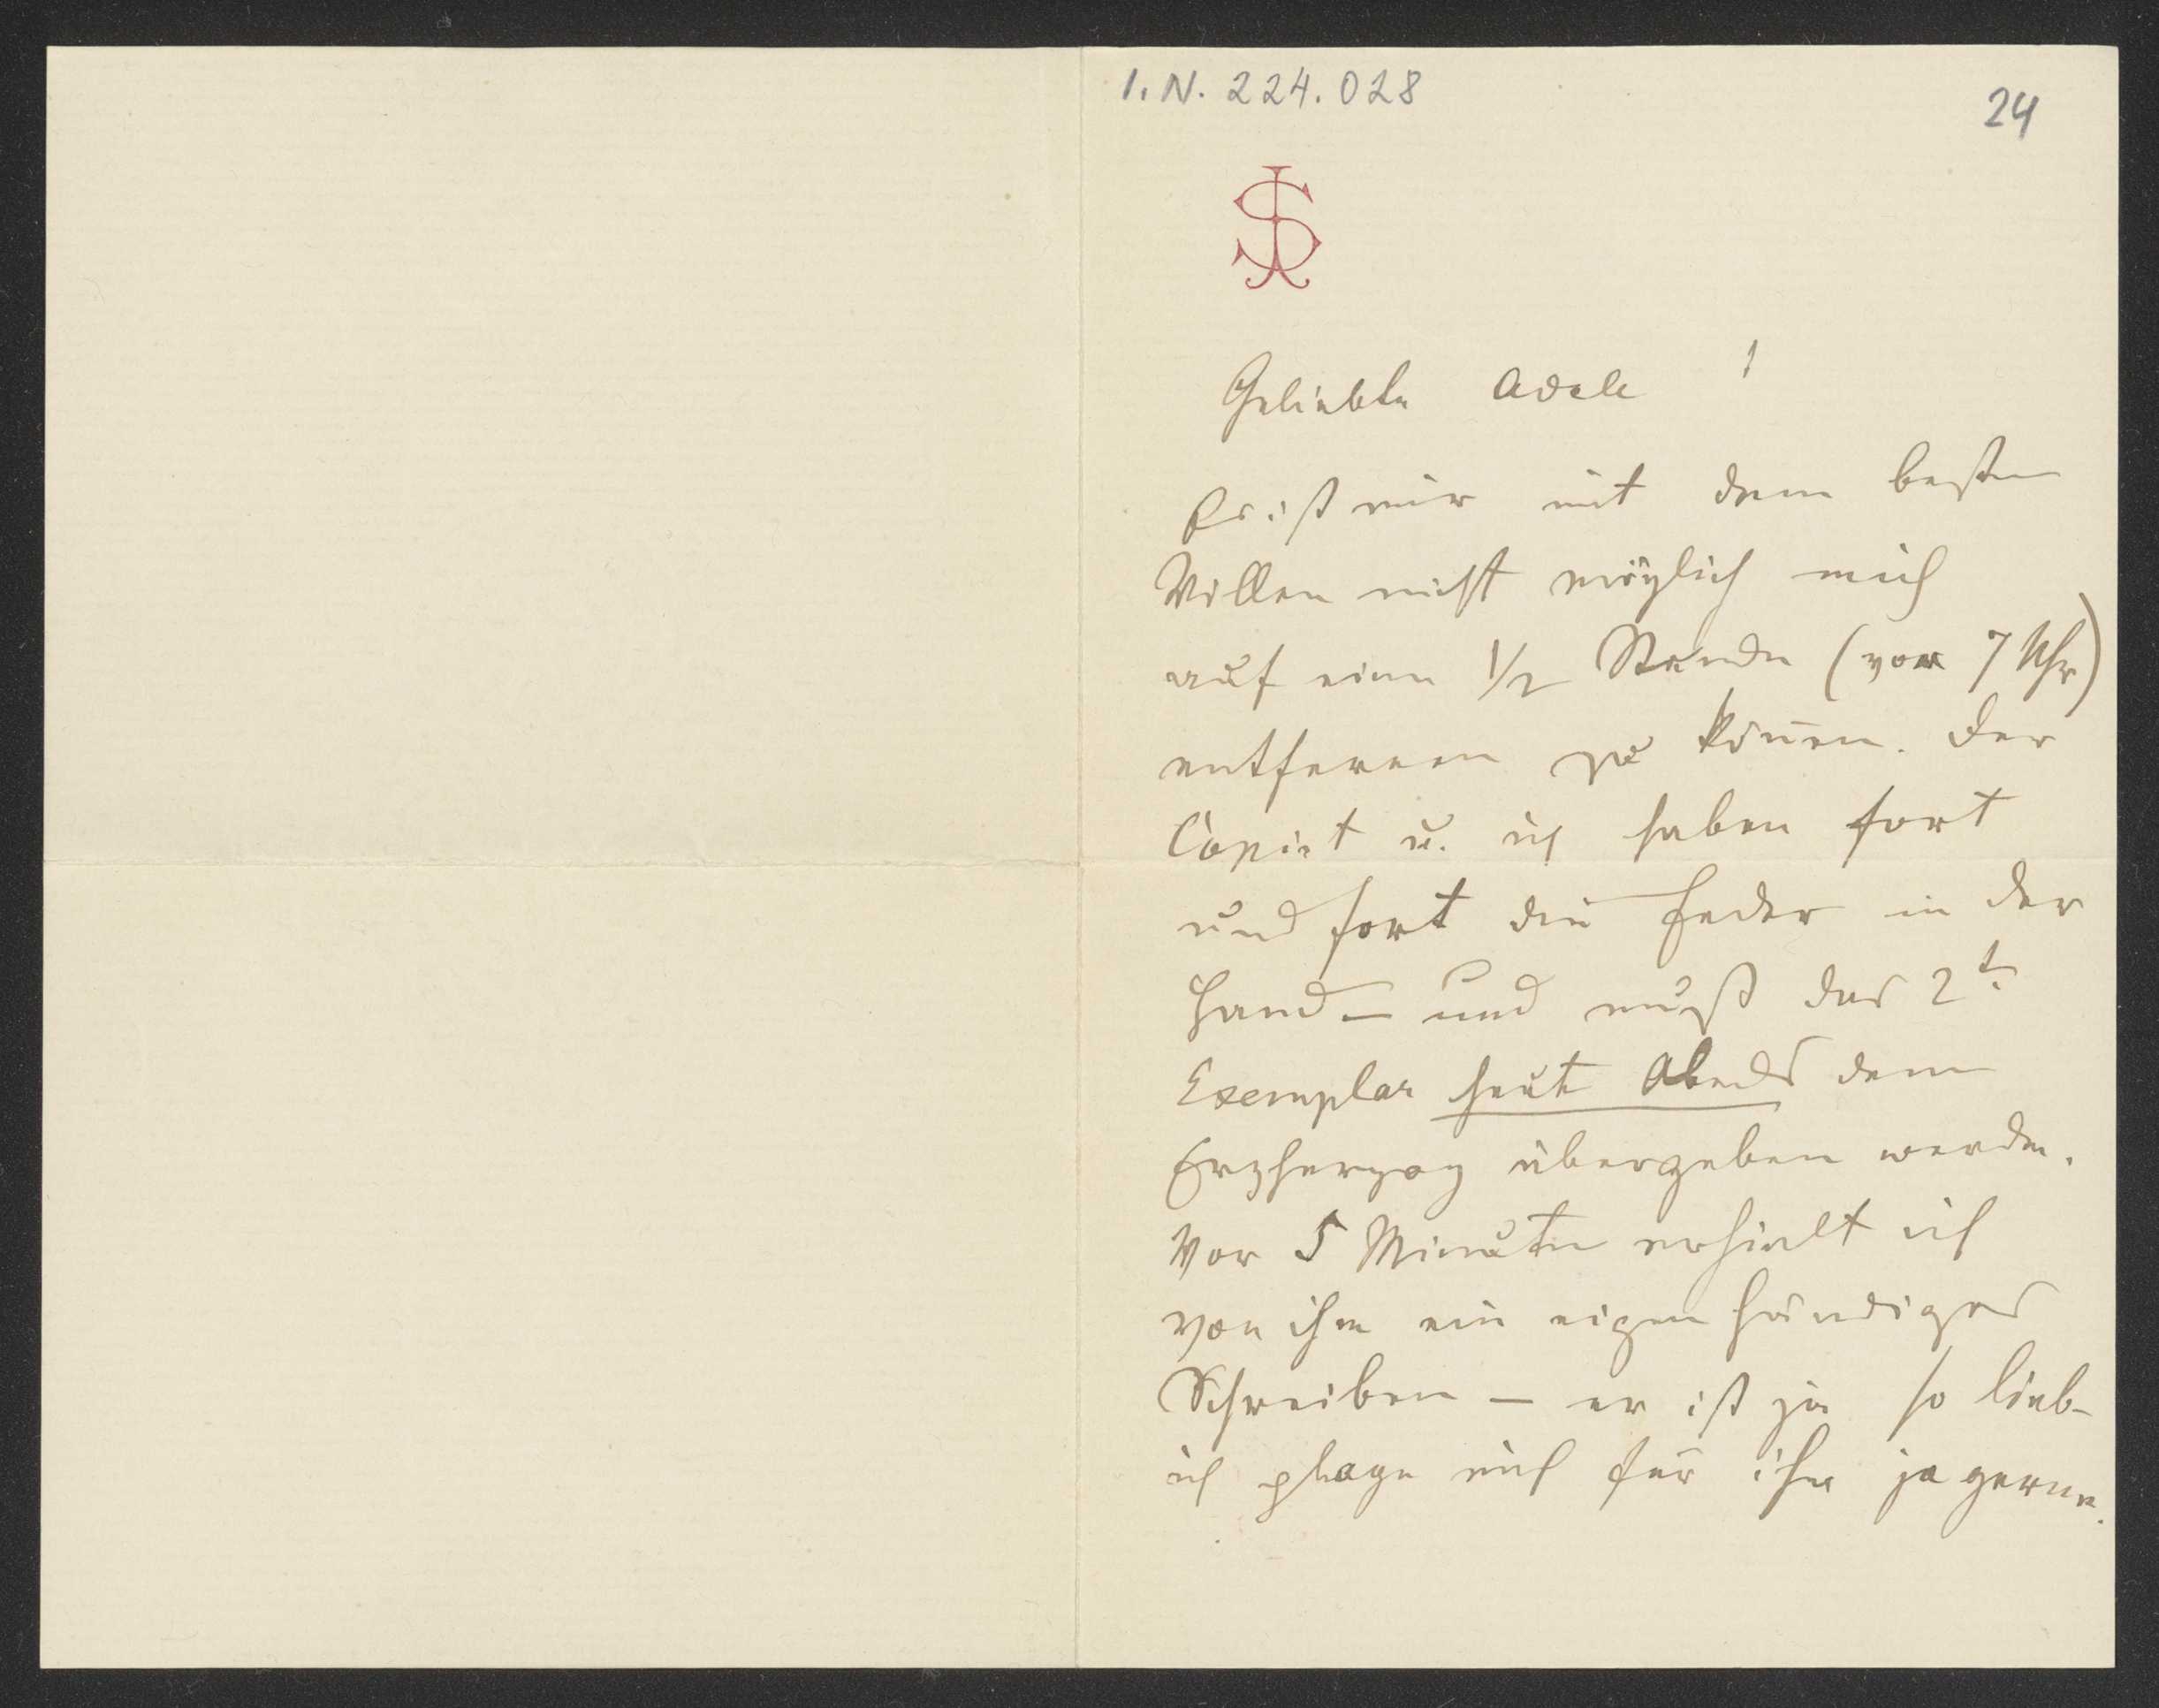 I. N. 224.028
24
JS
Geliebte Adele!
Es ist mir mit dem besten
Willen nicht möglich mich
auf eine 1/2 Stunde (vor 7 Uhr)
entfernen zu kön̄en. Der
Copist u. ich haben fort
und fort die Feder in der
Hand – und muß das 2te
Exemplar heute Abends dem
Erzherzog übergeben werden.
Vor 5 Minuten erhielt ich
von ihm ein eigenhändiges
Schreiben – er ist ja so lieb –
ich plage mich für ihn ja gerne.